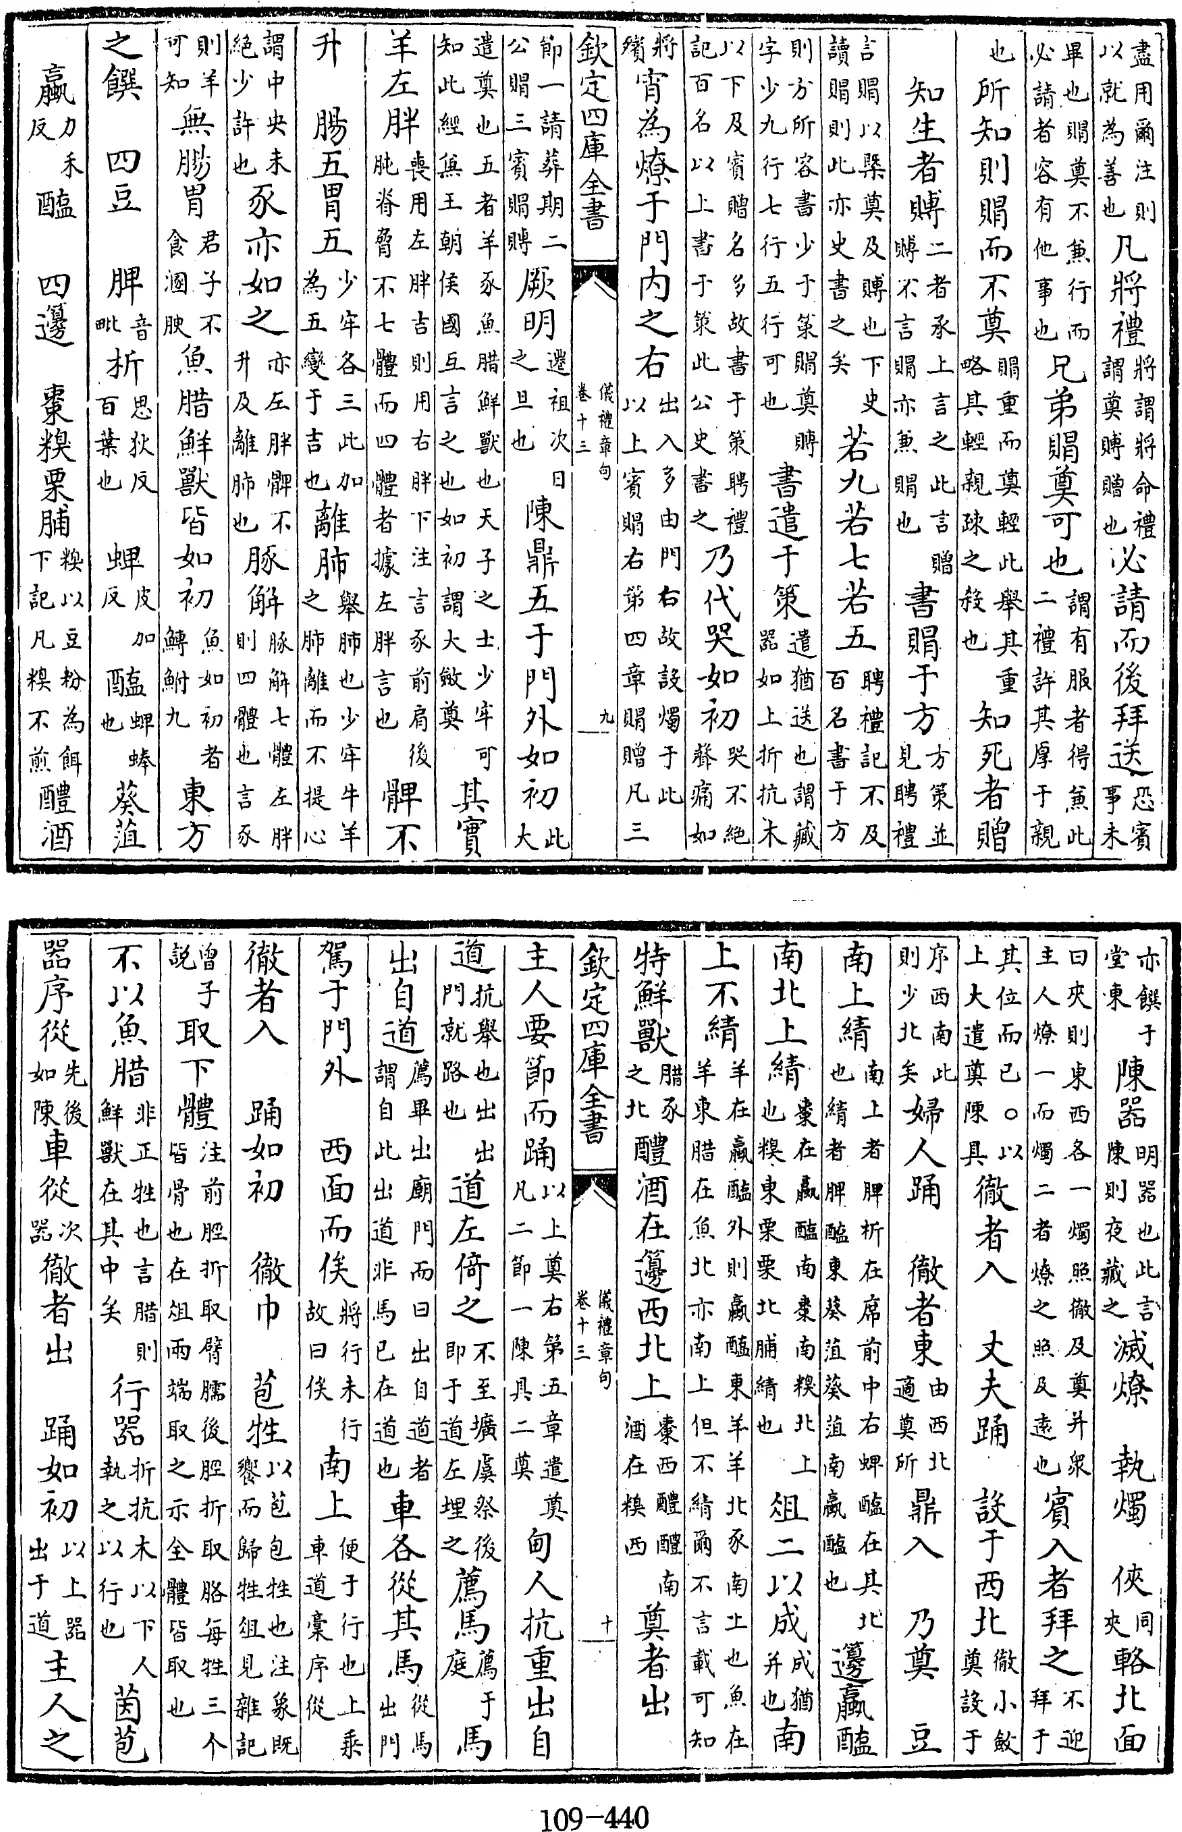 盡用爾注則以就為善也凡將禮將謂將命禮謂奠賻贈也必請而後拜送恐賓事未
畢也賵奠不兼行而必請者容有他事也兄弟賵奠可也謂有服者得兼此二禮許其厚于親
也所知則賵而不奠賵重而奠輕此舉其重略其輕親疎之殺也知死者贈
知生者賻二者承上言之此言贈賻不言賵亦兼賵也書賵于方方策並見聘禮
言賵以槩奠及賻也下史讀賵則此亦史書之矣若九若七若五聘禮記不及百名書于方
則方所容書少于策賵奠賻字少九行七行五行可也書遣于策遣猶送也謂藏器如上折抗木
以下及賓贈名多故書于策聘禮記百名以上書于策此公史書之乃代哭如初哭不絕聲痛如
將殯宵為燎于門内之右出入多由門右故設燭于此以上賓賵右第四章賵贈凡三
欽定四庫全書
儀禮章句
卷十三
九
節一請葬期二公賵三賓賵賻厥明遷祖次日之旦也陳鼎五于門外如初此大
遣奠也五者羊豕魚腊鮮獸也天子之士少牢可知此經無王朝侯國互言之也如初謂大斂奠其實
羊左胖喪用左胖吉則用右胖下注言豕前肩後肫脊脅不七體而四體者據左胖言也髀不
升腸五胃五少牢各三此加為五變于吉也離肺舉肺也少牢牛羊之肺離而不提心
謂中央未絕少許也豕亦如之亦左胖髀不升及離肺也豚解豚解七體左胖則四體也言豕
則羊可知無腸胃君子不食溷腴魚腊鮮獸皆如初魚如初者鱄鮒九東方
之饌四豆脾音毗析思狄反百葉也蜱皮加反醢蜱蜯也葵菹
蠃力禾反醢四籩棗糗栗脯糗以豆粉為餌下記凡糗不煎醴酒
亦饌于堂東陳器明器也此言陳則夜藏之滅燎執燭俠同夾輅北面
曰夾則東西各一燭照徹及奠并衆主人燎一而燭二者燎之照及遠也賓入者拜之不迎拜于
其位而已○以上大遣奠陳具徹者入丈夫踊設于西北徹小斂奠設于
序西南此則少北矣婦人踊徹者東由西北適奠所鼎入乃奠豆
南上綪南上者脾析在席前中右蜱醢在其北也綪者脾醢東葵菹葵菹南蠃醢也籩蠃醢
南北上綪棗在蠃醢南棗南糗北上也糗東栗栗北脯綪也俎二以成成猶并也南
上不綪羊在蠃醢外則蠃醢東羊羊北豕南上也魚在羊東腊在魚北亦南上但不綪爾不言載可知
特鮮獸腊豕之北醴酒在籩西北上棗西醴醴南酒在糗西奠者出
欽定四庫全書
儀禮章句
卷十三
十
主人要節而踊以上奠右第五章遣奠凡二節一陳具二奠甸人抗重出自
道抗舉也出出道門就路也道左倚之不至壙虞祭後即于道左埋之薦馬薦于庭馬
出自道薦畢出廟門而曰出自道者謂自此出道非馬已在道也車各從其馬從馬出門
駕于門外西面而俟將行未行故曰俟南上便于行也上乘車道槀序從
徹者入踊如初徹巾苞牲以苞包牲也注象既饗而歸牲俎見雜記
曾子說取下體注前脛折取臂臑後脛折取胳每牲三个皆骨也在俎兩端取之示全體皆取也
不以魚腊非正牲也言腊則鮮獸在其中矣行器折抗木以下人執之以行也茵苞
器序從先後如陳車從次器徹者出踊如初以上器出于道主人之
109-440